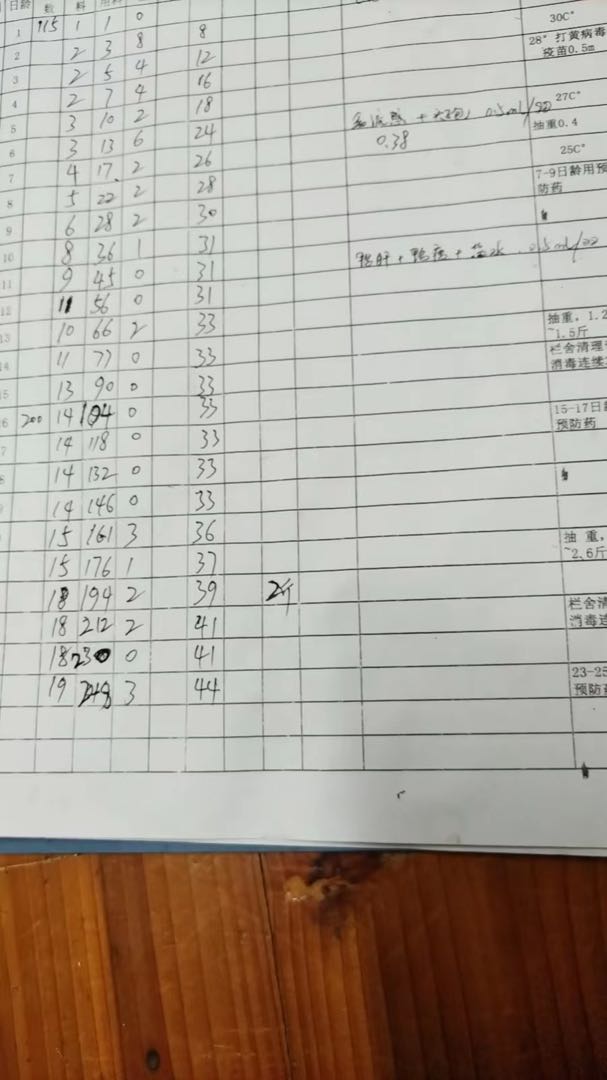 日龄 数 料 用料
1 115 1 1 0 30C°
2 2 3 8 8 28° 打黄病毒
疫苗0.5m
3 2 5 4 12
4 2 7 4 16 27C°
5 3 10 2 18 0.5ml/
0.38 抽重0.4
6 3 13 6 24 25C°
7 4 17 2 26 7-9日龄用预
防药
8 5 22 2 28
9 6 28 2 30
10 8 36 1 31 0.5ml/
11 9 45 0 31
12 11 56 0 31 抽重，1.2
~1.5斤
13 10 66 2 33 栏舍清理
消毒连续
14 11 77 0 33
15 13 90 0 33 15-17日
预防药
16 200 14 104 0 33
7 14 118 0 33
8 14 132 0 33
14 146 0 33 抽 重，
~2.6斤
15 161 3 36
15 176 1 37 栏舍清
消毒连
18 194 2 39 2斤
18 212 2 41 23-25
预防药
18 230 0 41
19 248 3 44